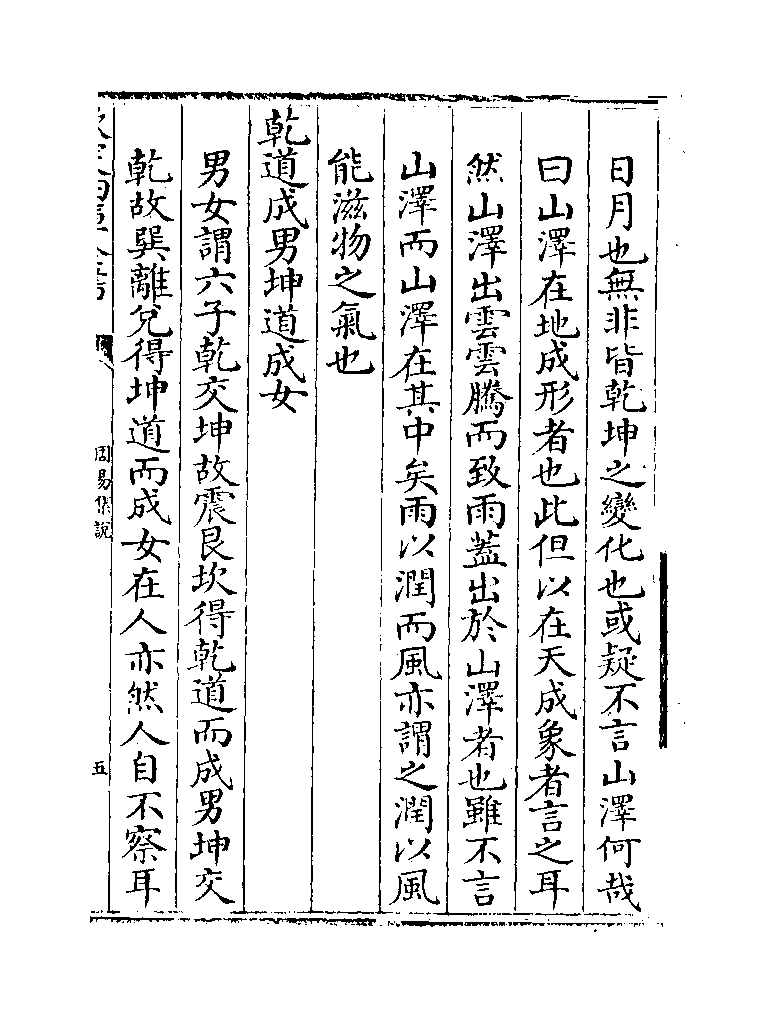 日月也無非皆乾坤之變化也或疑不言山澤何哉
曰山澤在地成形者也此但以在天成象者言之耳
然山澤出雲雲騰而致雨蓋出於山澤者也雖不言
山澤而山澤在其中矣雨以潤而風亦謂之潤以風
能滋物之氣也
乾道成男坤道成女
男女謂六子乾交坤故震艮坎得乾道而成男坤交
乾故巽離兌得坤道而成女在人亦然人自不察耳
周易集說
五